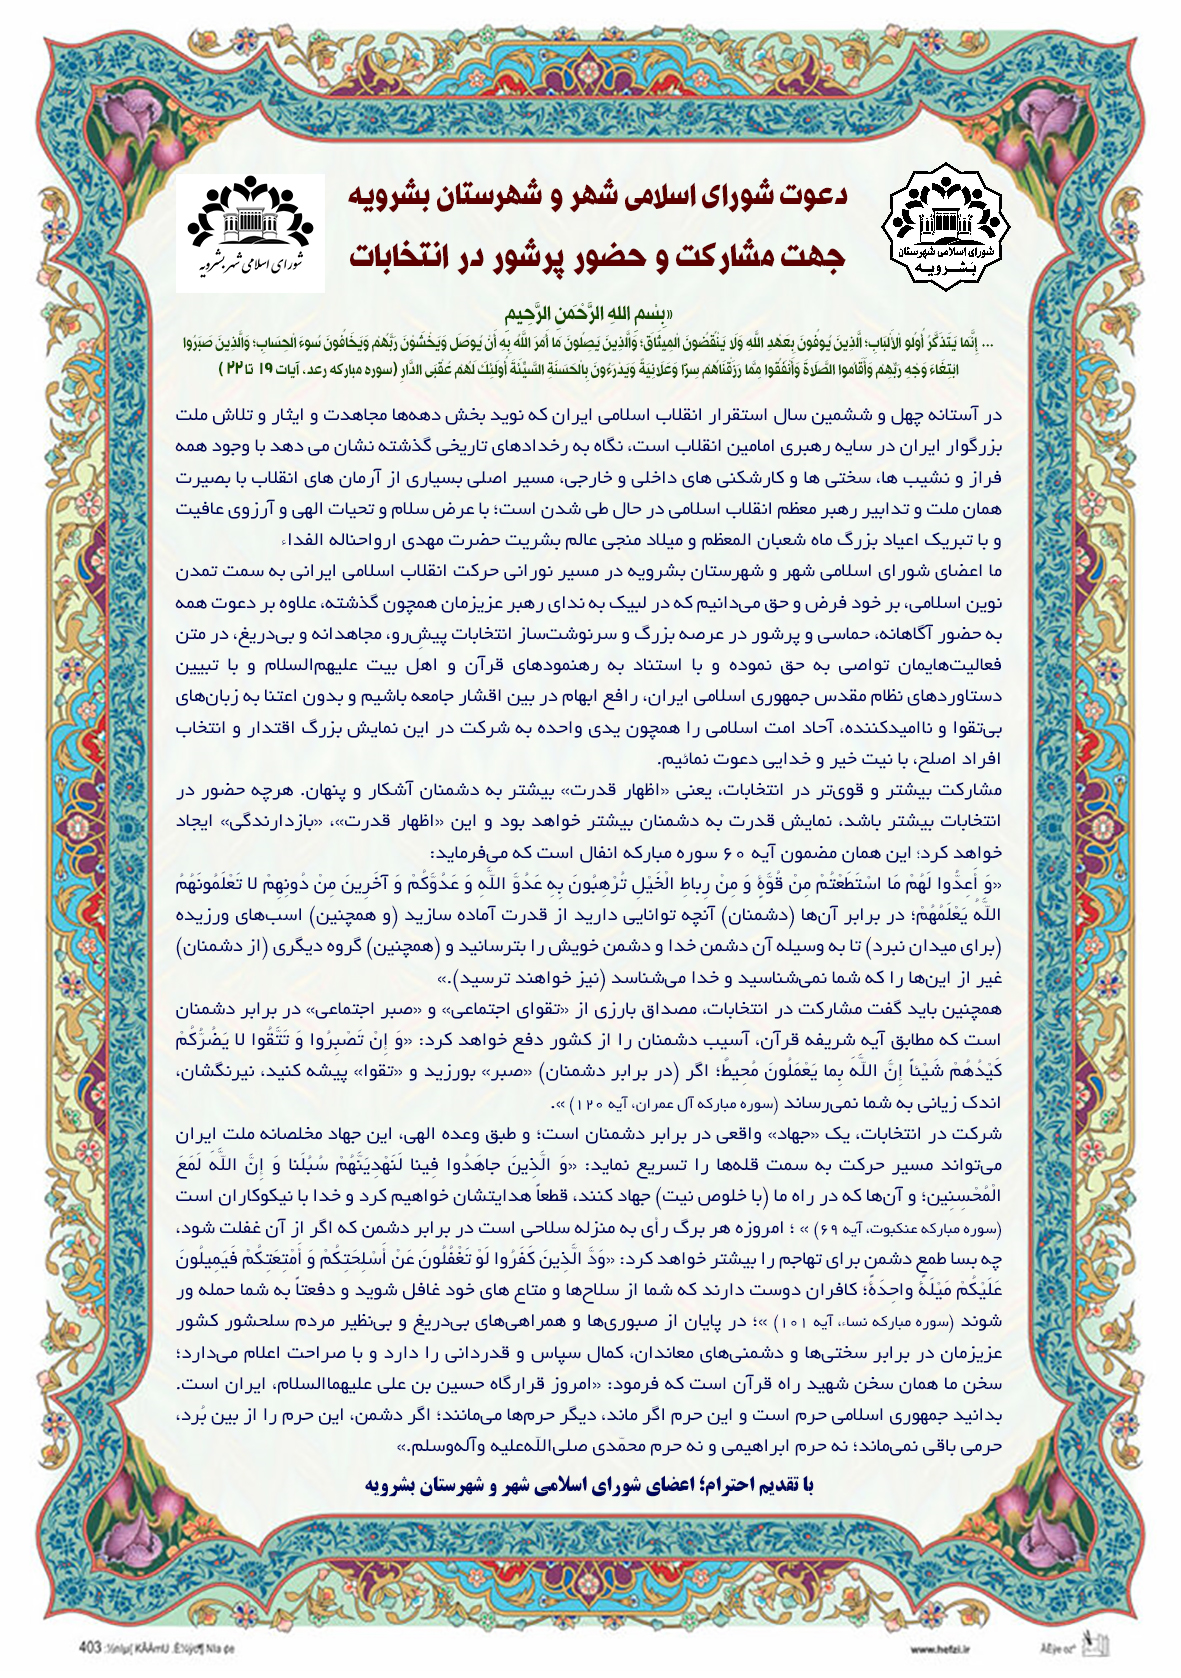 دعوت شورای اسلامی شهر و شهرستان بشرویه
جهت مشارکت و حضور پرشور در انتخابات
شورای اسلامی شهر بشرویه
شورای اسلامی شهرستان
بشرویه
«بِسْمِ اللهِ الرَّحْمَنِ الرَّحِیم
... إِنَّمَا یَتَذَکَّرُ أُولُو الْأَلْبَابِ؛ الَّذِینَ یُوفُونَ بِعَهْدِ اللَّهِ وَلَا یَنْقُضُونَ الْمِیثَاقَ؛ وَالَّذِینَ یَصِلُونَ مَا أَمَرَ اللَّهُ بِهِ أَنْ یُوصَلَ وَیَخْشَوْنَ رَبَّهُمْ وَیَخَافُونَ سُوءَ الْحِسَابِ؛ وَالَّذِینَ صَبَرُوا
ابْتِغَاءَ وَجْهِ رَبِّهِمْ وَأَقَامُوا الصَّلَاةَ وَأَنْفَقُوا مِمَّا رَزَقْنَاهُمْ سِرًّا وَعَلَانِیَةً وَیَدْرَءُونَ بِالْحَسَنَةِ السَّیِّئَةَ أُولَئِکَ لَهُمْ عُقْبَى الدَّارِ (سوره مبارکه رعد، آیات ۱۹ تا ۲۲ )
در آستانه چهل و ششمین سال استقرار انقلاب اسلامی ایران که نوید بخش دهه‌ها مجاهدت و ایثار و تلاش ملت
بزرگوار ایران در سایه رهبری امامین انقلاب است، نگاه به رخدادهای تاریخی گذشته نشان می دهد با وجود همه
فراز و نشیب ها، سختی ها و کارشکنی های داخلی و خارجی، مسیر اصلی بسیاری از آرمان های انقلاب با بصیرت
همان ملت و تدابیر رهبر معظم انقلاب اسلامی در حال طی شدن است؛ با عرض سلام و تحیات الهی و آرزوی عافیت
و با تبریک اعیاد بزرگ ماه شعبان المعظم و میلاد منجی عالم بشریت حضرت مهدی ارواحناله الفداء
ما اعضای شورای اسلامی شهر و شهرستان بشرویه در مسیر نورانی حرکت انقلاب اسلامی ایرانی به سمت تمدن
نوین اسلامی، بر خود فرض و حق می‌دانیم که در لبیک به ندای رهبر عزیزمان همچون گذشته، علاوه بر دعوت همه
به حضور آگاهانه، حماسی و پرشور در عرصه بزرگ و سرنوشت‌ساز انتخابات پیشِ‌رو، مجاهدانه و بی‌دریغ، در متن
فعالیت‌هایمان تواصی به حق نموده و با استناد به رهنمودهای قرآن و اهل بیت علیهم‌السلام و با تبیین
دستاوردهای نظام مقدس جمهوری اسلامی ایران، رافع ابهام در بین اقشار جامعه باشیم و بدون اعتنا به زبان‌های
بی‌تقوا و ناامیدکننده، آحاد امت اسلامی را همچون یدی واحده به شرکت در این نمایش بزرگ اقتدار و انتخاب
افراد اصلح، با نیت خیر و خدایی دعوت نمائیم.
مشارکت بیشتر و قوی‌تر در انتخابات، یعنی «اظهار قدرت» بیشتر به دشمنان آشکار و پنهان. هرچه حضور در
انتخابات بیشتر باشد، نمایش قدرت به دشمنان بیشتر خواهد بود و این «اظهار قدرت»، «بازدارندگی» ایجاد
خواهد کرد؛ این همان مضمون آیه ۶۰ سوره مبارکه انفال است که می‌فرماید:
«وَ أَعِدُّوا لَهُمْ مَا اسْتَطَعْتُمْ مِنْ قُوَّةٍ وَ مِنْ رِباطِ الْخَیْلِ تُرْهِبُونَ بِهِ عَدُوَّ اللَّهِ وَ عَدُوَّکُمْ وَ آخَرِینَ مِنْ دُونِهِمْ لا تَعْلَمُونَهُمُ
اللَّهُ یَعْلَمُهُمْ؛ در برابر آن‌ها (دشمنان) آنچه توانایی دارید از قدرت آماده سازید (و همچنین) اسب‌های ورزیده
(برای میدان نبرد) تا به وسیله آن دشمن خدا و دشمن خویش را بترسانید و (همچنین) گروه دیگری (از دشمنان)
غیر از این‌ها را که شما نمی‌شناسید و خدا می‌شناسد (نیز خواهند ترسید).»
همچنین باید گفت مشارکت در انتخابات، مصداق بارزی از «تقوای اجتماعی» و «صبر اجتماعی» در برابر دشمنان
است که مطابق آیه شریفه قرآن، آسیب دشمنان را از کشور دفع خواهد کرد: «وَ إِنْ تَصْبِرُوا وَ تَتَّقُوا لا یَضُرُّکُمْ
کَیْدُهُمْ شَیْئاً إِنَّ اللَّهَ بِما یَعْمَلُونَ مُحِیطٌ؛ اگر (در برابر دشمنان) «صبر» بورزید و «تقوا» پیشه کنید، نیرنگشان،
اندک زیانی به شما نمی‌رساند (سوره مبارکه آل عمران، آیه ۱۲۰) ».
شرکت در انتخابات، یک «جهاد» واقعی در برابر دشمنان است؛ و طبق وعده الهی، این جهاد مخلصانه ملت ایران
می‌تواند مسیر حرکت به سمت قله‌ها را تسریع نماید: «وَ الَّذِینَ جاهَدُوا فِینا لَنَهْدِیَنَّهُمْ سُبُلَنا وَ إِنَّ اللَّهَ لَمَعَ
الْمُحْسِنِین؛ و آن‌ها که در راه ما (با خلوص نیت) جهاد کنند، قطعاً هدایتشان خواهیم کرد و خدا با نیکوکاران است
(سوره مبارکه عنکبوت، آیه ۶۹) » ؛ امروزه هر برگ رأی به منزله سلاحی است در برابر دشمن که اگر از آن غفلت شود،
چه بسا طمعِ دشمن برای تهاجم را بیشتر خواهد کرد: «وَدَّ الَّذِینَ کَفَرُوا لَوْ تَغْفُلُونَ عَنْ أَسْلِحَتِکُمْ وَ أَمْتِعَتِکُمْ فَیَمِیلُونَ
عَلَیْکُمْ مَیْلَةً واحِدَةً؛ کافران دوست دارند که شما از سلاح‌ها و متاع های خود غافل شوید و دفعتاً به شما حمله ور
شوند (سوره مبارکه نساء، آیه ۱۰۱) »؛ در پایان از صبوری‌ها و همراهی‌های بی‌دریغ و بی‌نظیر مردم سلحشور کشور
عزیزمان در برابر سختی‌ها و دشمنی‌های معاندان، کمال سپاس و قدردانی را دارد و با صراحت اعلام می‌دارد؛
سخن ما همان سخن شهید راه قرآن است که فرمود: «امروز قرارگاه حسین بن علی علیهماالسلام، ایران است.
بدانید جمهوری اسلامی حرم است و این حرم اگر ماند، دیگر حرم‌ها می‌مانند؛ اگر دشمن، این حرم را از بین بُرد،
حرمی باقی نمی‌ماند؛ نه حرم ابراهیمی و نه حرم محمّدی صلی‌اللّه‌علیه وآله‌وسلم.»
با تقدیم احترام؛ اعضای شورای اسلامی شهر و شهرستان بشرویه
403
www.hefzi.ir